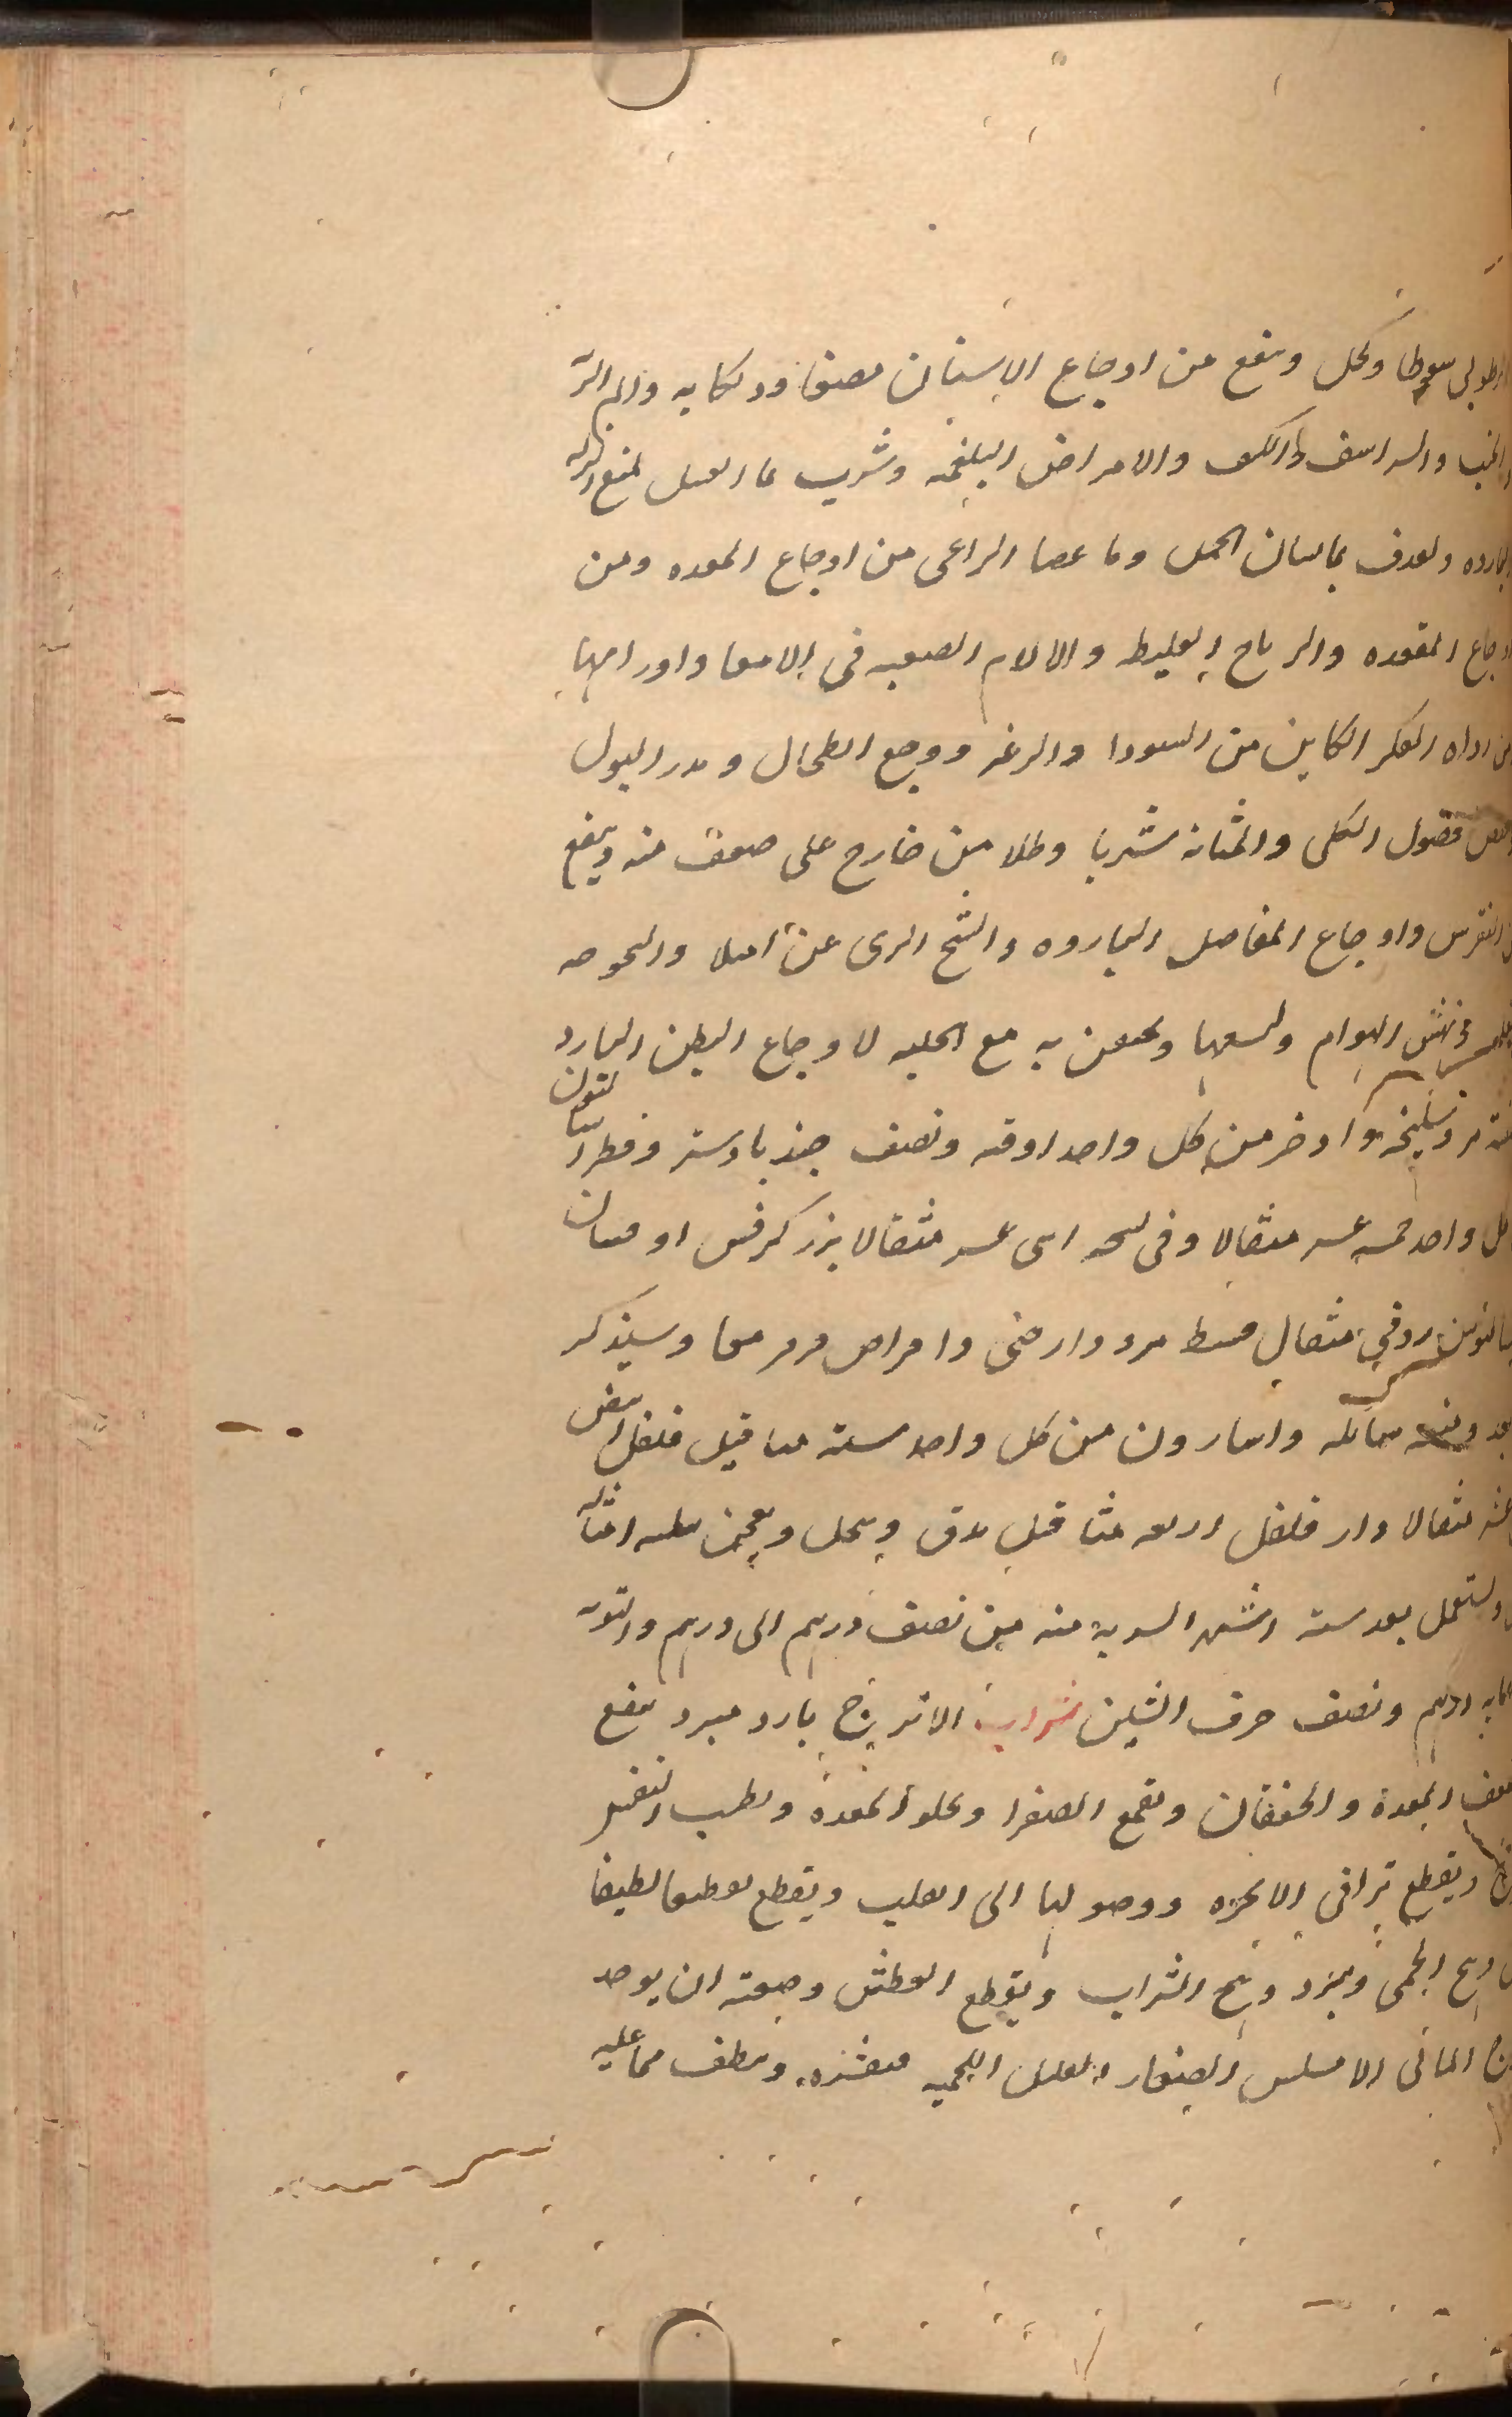 سعوطا وكحل وينفع من اوجاع الاسنان مضغا ودلكا به والم
الجنب والشراسيف والكلف والامراض البلغمية وشرب بما العسل لمنع النزله
البارده ولقذف بما لسان الحمل وما عصا الراعى من اوجاع المعده ومن
اوجاع المقعده والرياح الغليظه والالام الصعبه فى الامعا واورامها
اذاه الفكر الكاين من السودا والرعب ووجع الطحال ويدر البول
فضول الكلى والمثانه شربا وطلا من خارج على صوفه منه وينفع
النقرس واوجاع المفاصل البارده والتشنج الذى عن امتلا
ونهش الهوام ولسعها ويحقن به مع الحلبه لاوجاع البطن البارد
وسليخه واذخر من كل واحد اوقيه ونصف جندبادستر وفطراساليون
كل واحد خمسه عشر مثقالا وفى نسخه اثنى عشر مثقالا بزر كرفس اوقيتان
مثقال قسط مر ودارصينى واقراص وسيذكر
بعد سايله واسارون من كل واحد سته مثاقيل فلفل ابيض
مثقالا دار فلفل اربعه مثاقيل يدق وينخل ويعجن بثلثه امثاله
ويستعمل بعد سته اشهر الشربه منه من نصف درهم الى درهم والقويه
درهم ونصف حرف الشين شراب الاترنج بارد مبرد ينفع
ضعف المعدة والخفقان ويقمع الصفرا ويجلو المعدة ويطيب النفس
ويقطع تراقى الابخره ووصولها الى القلب ويقطع تقطيعا لطيفا
وهج الحمى ويبرد وهج الشراب ويقطع العطش وصفته ان يوخذ
الاملس الصغار القليل اللحميه فتقشره وينظف مما عليه